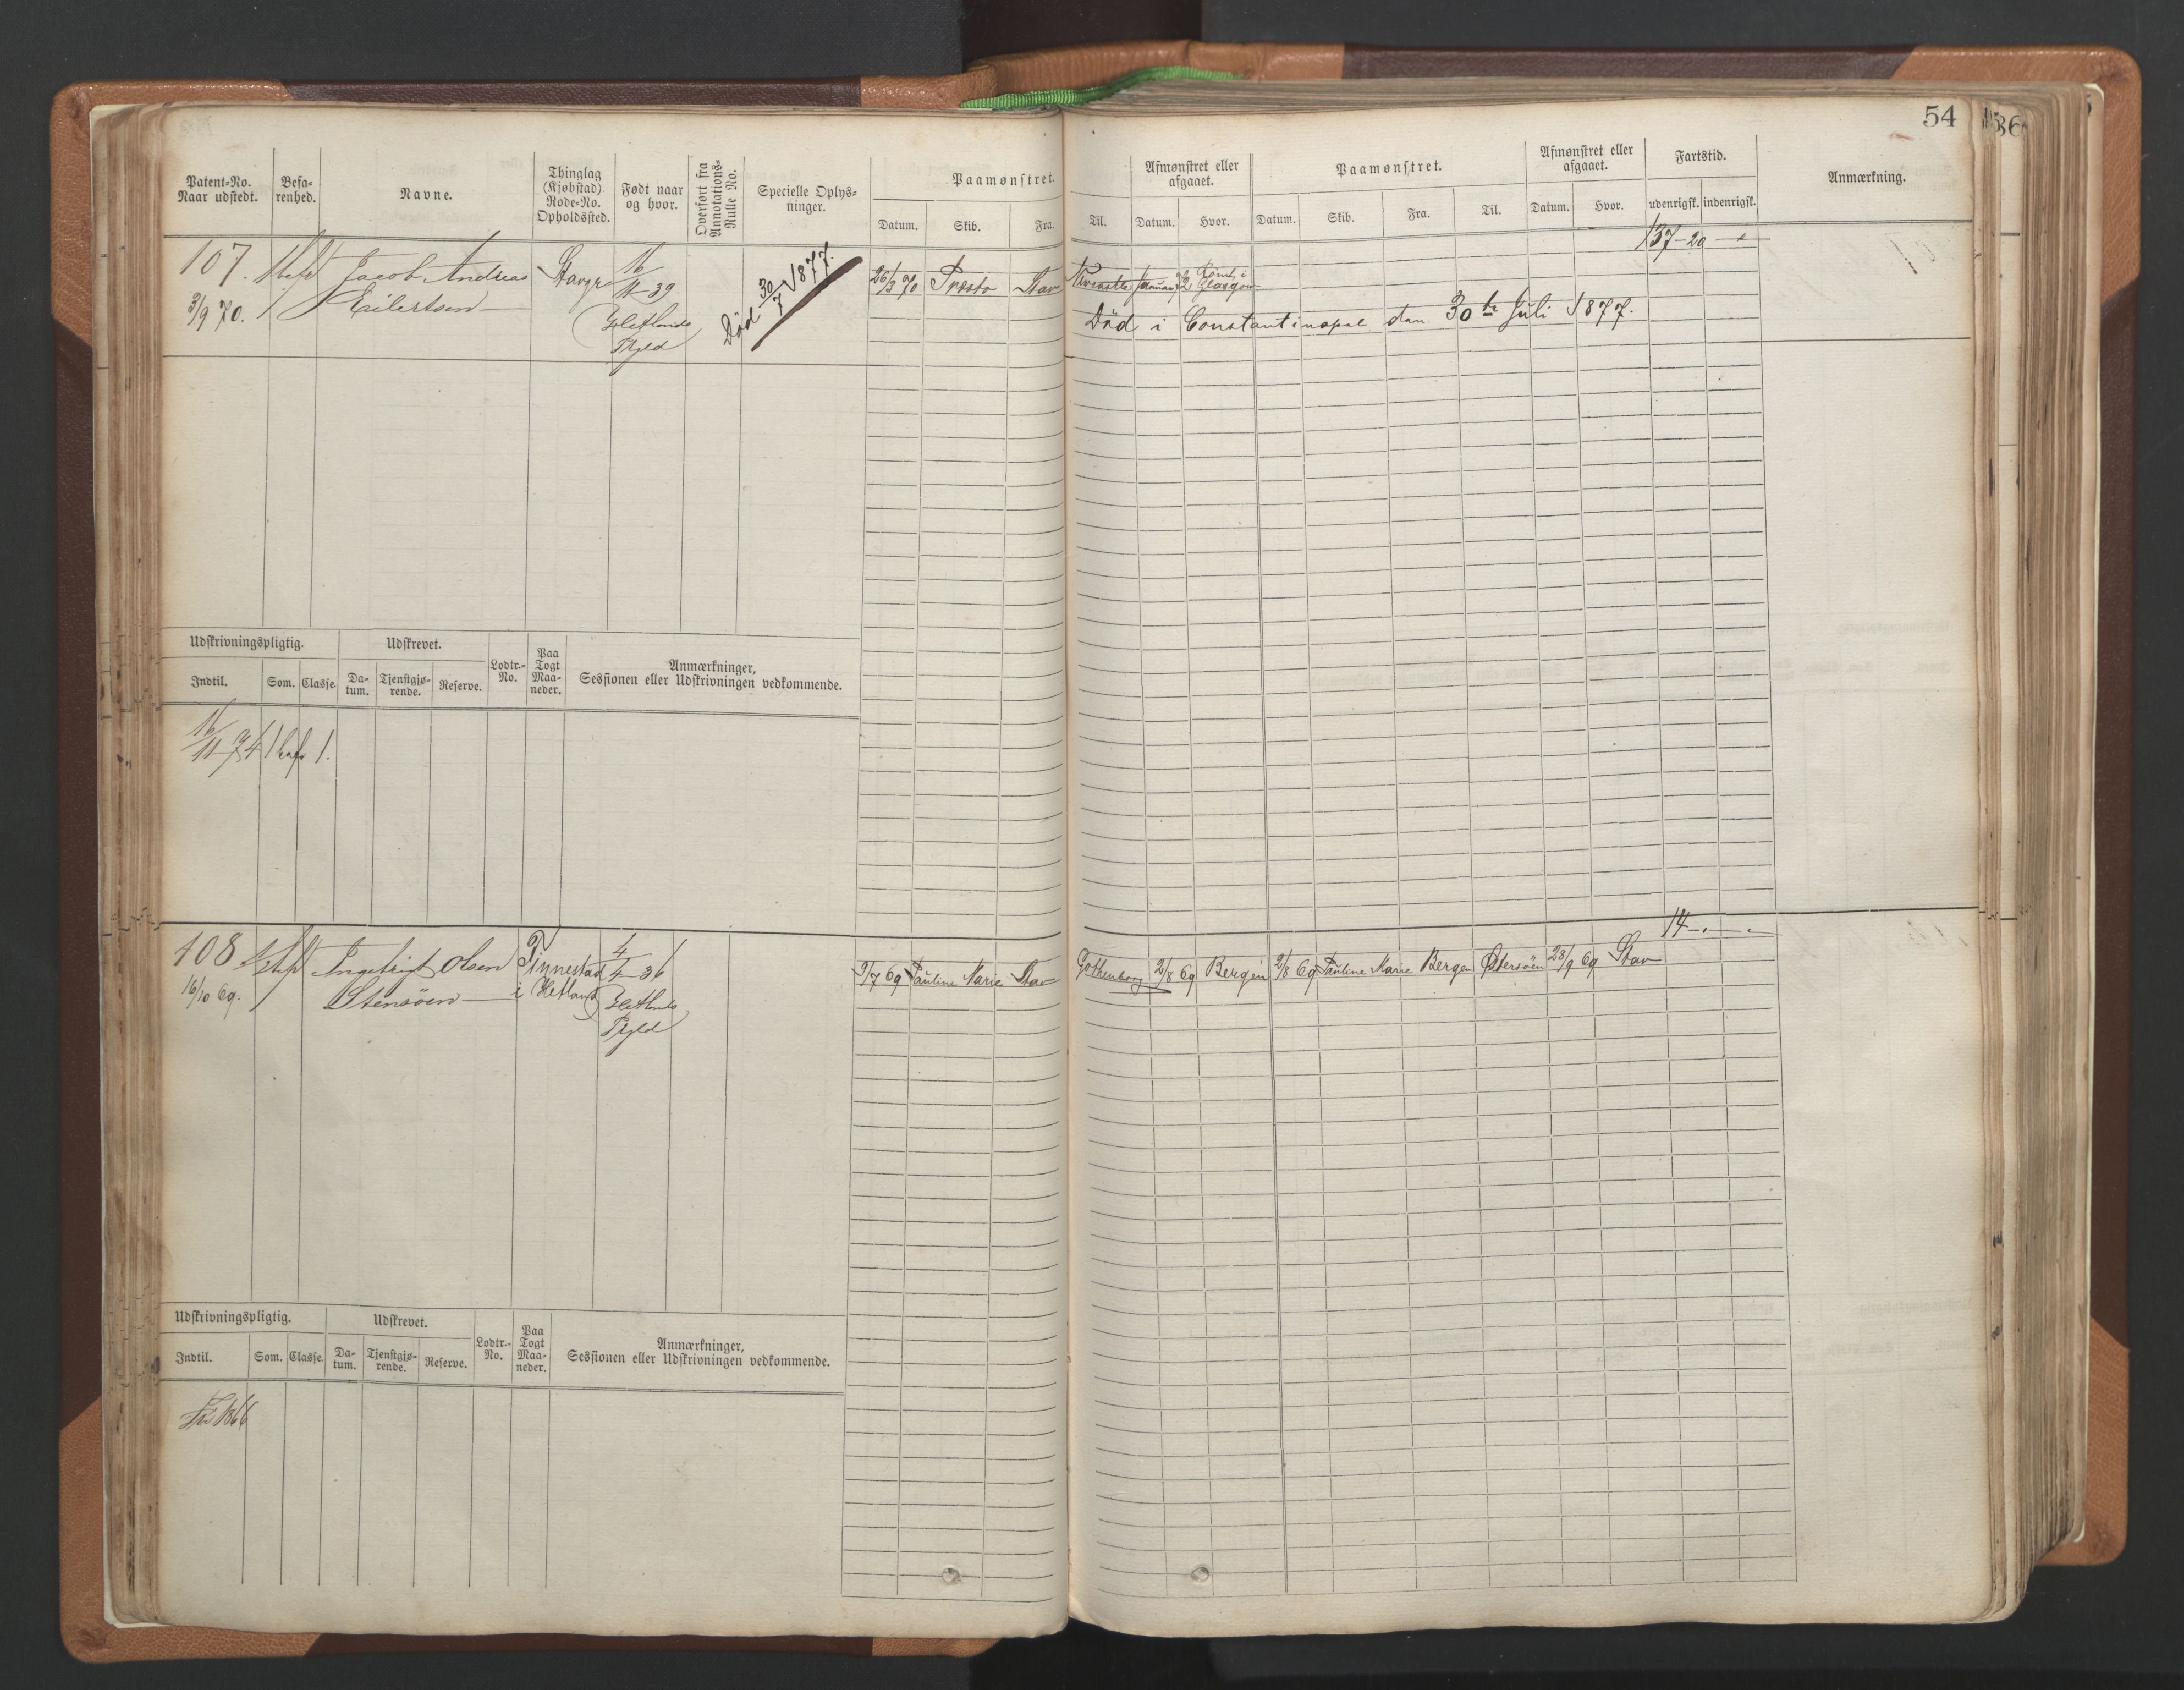 54
Patent-No. Naar udstedt.
Befa-renhed.
Navne.
Thinglag (Kjøbstad) Rode-No. Opholdssted.
Født naar og hvor.
Overført fra Annotations-Rulle No.
Specielle Oplys-ninger.
Paamønstret.
Datum. Skib. Fra.
Til.
Afmønstret eller afgaaet.
Datum. Hvor.
Paamønstret.
Datum. Skib. Fra. Til.
Afmønstret eller afgaaet.
Datum. Hvor.
Fartstid.
udenrigsk. indenrigsk.
Anmærkning.
137-20
107. Jacob Andreas
3/9 70. Eilertsen
16/11 39
Hetlands
Pgld
Død 30/7 1877.
Præsto Stav
Januar 72 Glasgow
Død i Constantinopel den 30te Juli 1877.
Udskrivningspligtig. Udskrevet. Lodtr.-No. Paa Togt Maa-neder. Anmærkninger, Sessionen eller Udskrivningen vedkommende.
Indtil. Som. Classe. Da-tum. Tjenstgjø-rende. Reserve.
16/11 74 1 bef 1.
14
108 Olsen Tinnestad 4/4 36
16/10 69. Stensøen i Hetland Hetlands
Pgld
9/7 69 Pauline Marie Stav Gothenborg 2/8 69 Bergen 2/8 69 Pauline Marie Bergen Østersøen 28/9 69 Stav
Udskrivningspligtig. Udskrevet. Lodtr.-No. Paa Togt Maa-neder. Anmærkninger, Sessionen eller Udskrivningen vedkommende.
Indtil. Som. Classe. Da-tum. Tjenstgjø-rende. Reserve.
1866